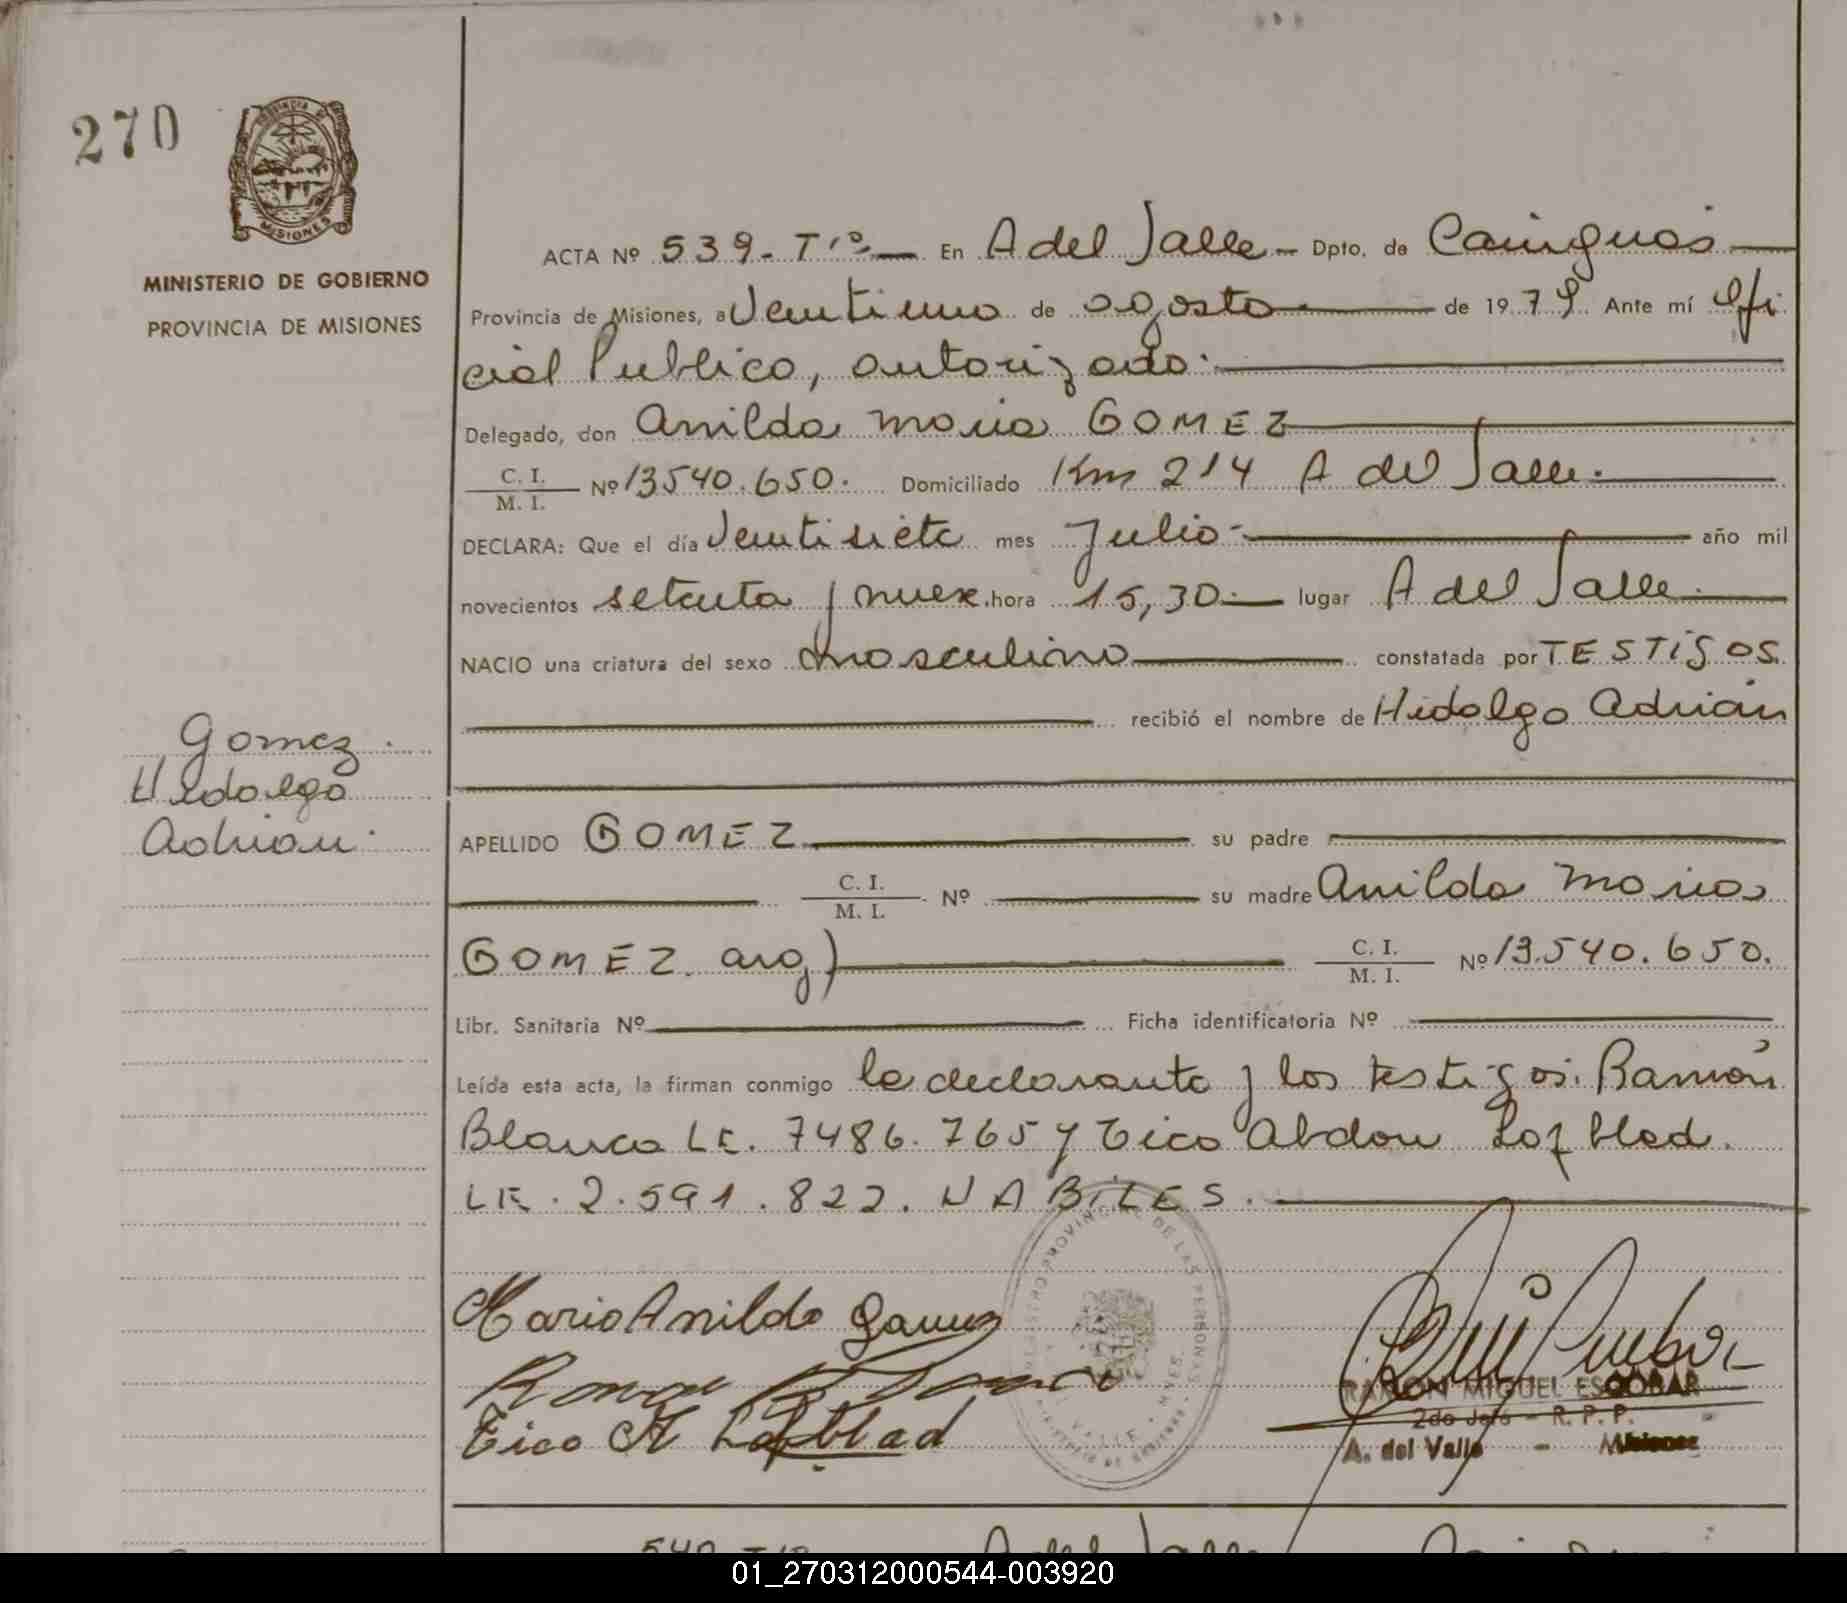 270
PROVINCIA DE
MISIONES
MINISTERIO DE GOBIERNO
PROVINCIA DE MISIONES
ACTA Nº 539- Tº En A del Valle Dpto. de Cainguás
Provincia de Misiones, a Veintiuno de agosto de 1979 Ante mí Ofi
cial Publico, autorizado
Delegado, don Anilda Maria GOMEZ
C. I.
M. I. Nº 13540.650. Domiciliado Km 214 A del Valle.
DECLARA: Que el día Veintisiete mes Julio año mil
novecientos setenta y nueve hora 15,30 lugar A del Valle
NACIO una criatura del sexo masculino constatada por TESTIGOS
recibió el nombre de Hidalgo Adrián
Gomez
Hidalgo
Adrian
APELLIDO GOMEZ su padre
C. I.
M. I. Nº su madre Anilda Maria
GOMEZ. arg) C. I.
M. I. Nº 13.540.650.
Libr. Sanitaria Nº Ficha identificatoria Nº
Leída esta acta, la firman conmigo la declarante y los testigos: Ramón
Blanco LE. 7486.765 y Tico Abdon Lofblad.
LE. 2.591.822. HABILES.
REGISTRO PROVINCIAL DE LAS PERSONAS
Maria Anilda Gomez
Tico A Lofblad
RAMON MIGUEL ESCOBAR
2do Jefe - R. P. P.
A. del Valle - Misiones
540 Tº A del Valle
01_270312000544-003920